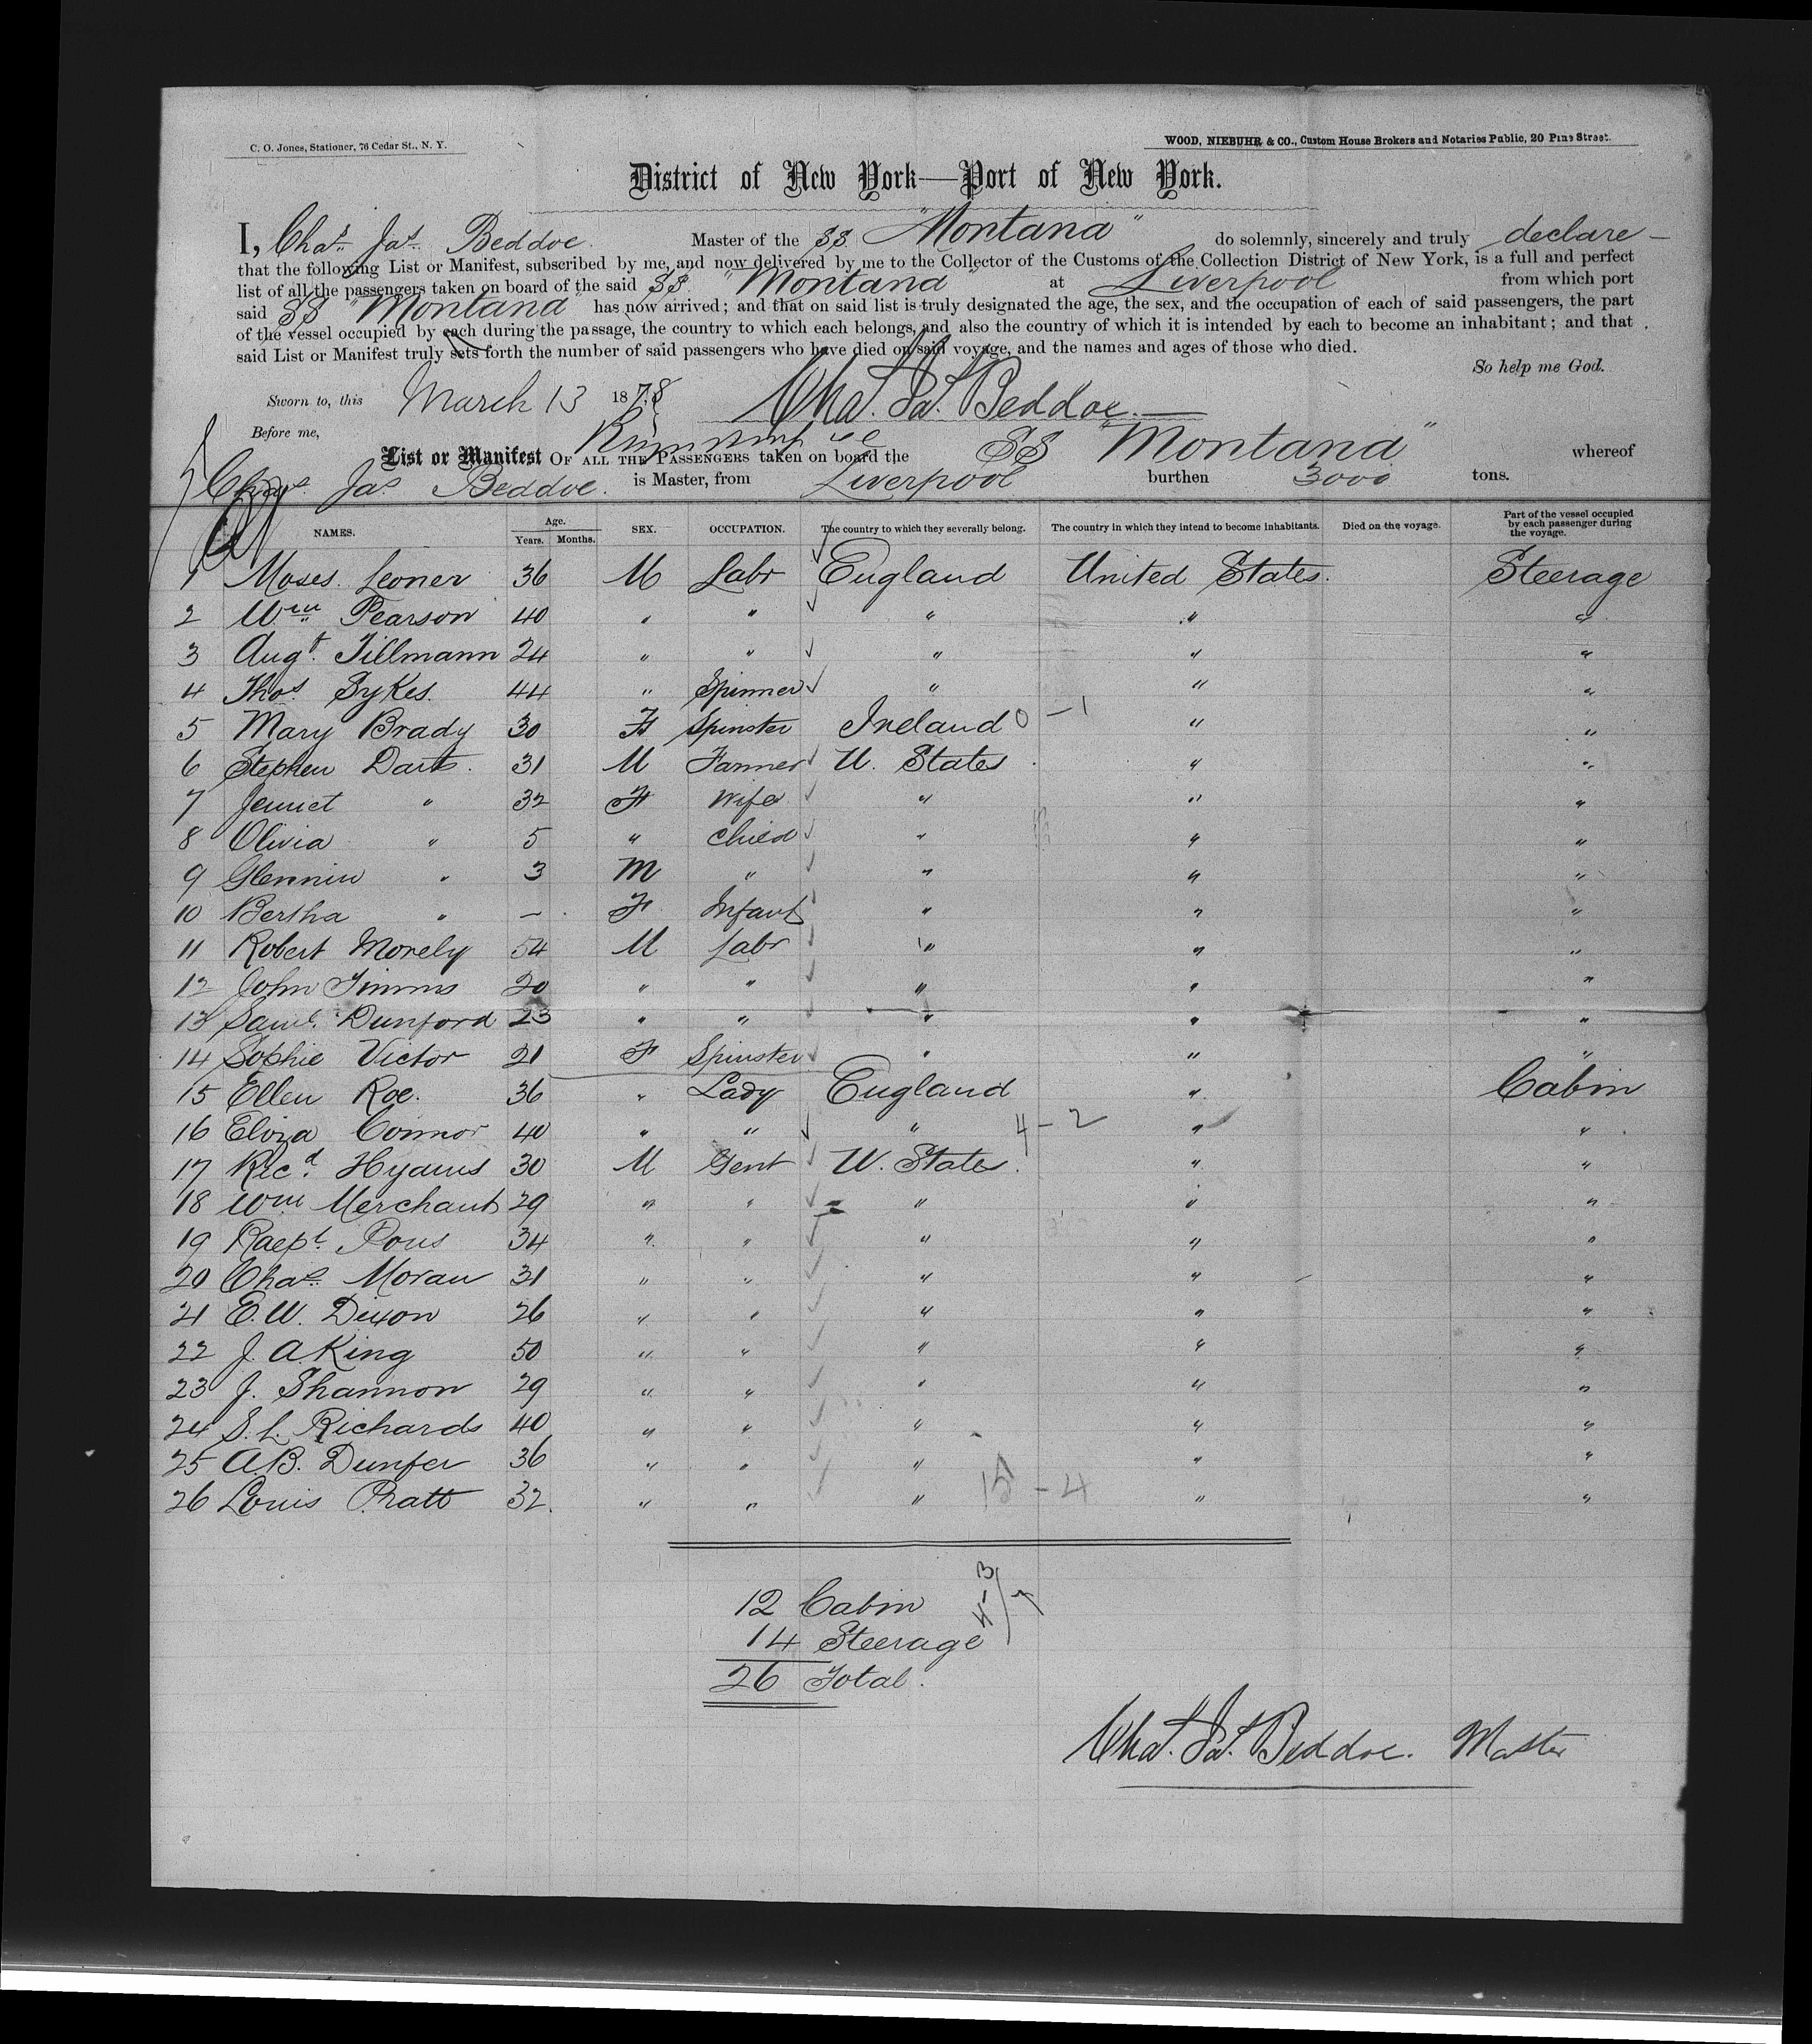 C. O. Jones, Stationer, 76 Cedar St., N. Y.
WOOD, NIEBUHR & CO., Custom House Brokers and Notaries Public, 20 Pine Street.
District of New York—Port of New York.
I, Chas. Jas. Beddoe. Master of the SS "Montana" do solemnly, sincerely and truly declare —
that the following List or Manifest, subscribed by me, and now delivered by me to the Collector of the Customs of the Collection District of New York, is a full and perfect
list of all the passengers taken on board of the said SS "Montana" at Liverpool from which port
said SS "Montana" has now arrived; and that on said list is truly designated the age, the sex, and the occupation of each of said passengers, the part
of the vessel occupied by each during the passage, the country to which each belongs, and also the country of which it is intended by each to become an inhabitant; and that
said List or Manifest truly sets forth the number of said passengers who have died on said voyage, and the names and ages of those who died.
So help me God.
Sworn to, this March 13 1878 Chas. Jas. Beddoe.
Before me,
List or Manifest OF ALL THE PASSENGERS taken on board the SS "Montana" whereof
Chas. Jas Beddoe. is Master, from Liverpool burthen 3000 tons.
NAMES. Age. Years. Months. SEX. OCCUPATION. The country to which they severally belong. The country in which they intend to become inhabitants. Died on the voyage. Part of the vessel occupied by each passenger during the voyage.
1 Moses Leoner 36 M Labr England United States. Steerage
2 Wm Pearson 40 " " " " "
3 Augt. Tillmann 24 " " " " "
4 Thos Sykes. 44 " Spinner " " "
5 Mary Brady 30 F Spinster Ireland 0 - 1 " "
6 Stephen Dart. 31 M Farmer U. States " "
7 Jennet " 32 F Wife " " "
8 Olivia " 5 " child " " "
9 Glennin " 3 M " " " "
10 Bertha " — F Infant " " "
11 Robert Morely 54 M Labr " " "
12 John Timms 20 " " " " "
13 Saml. Dunford 23 " " " " "
14 Sophie Victor 21 F Spinster " " "
15 Ellen Roe. 36 " Lady England " Cabin
16 Eliza Connor 40 " " " 4 - 2 " "
17 Ricd. Hyams 30 M Gent U. States. " "
18 Wm Merchant 29 " " " " "
19 Raept. Pous 34 " " " " "
20 Chas. Moran 31 " " " " "
21 E. W. Dixon 26 " " " " "
22 J. A. King 50 " " " " "
23 J. Shannon 29 " " " " "
24 S. L. Richards 40 " " " " "
25 A. B. Dunfer 36 " " " " "
26 Louis Pratt 32. " " " - 4 " "
12 Cabin
14 Steerage
26 Total.
4 - 3
7
Chas. Jas. Beddoe. Master